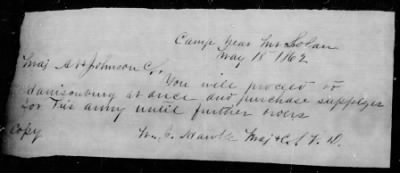 Camp Near Mt Solan
May 18 1862
Maj A H Johnson C,
You will proceed to
at once and purchase supplyes
for The army until further orders
Copy
Wm J. Hawks Maj & C. S. V. D.